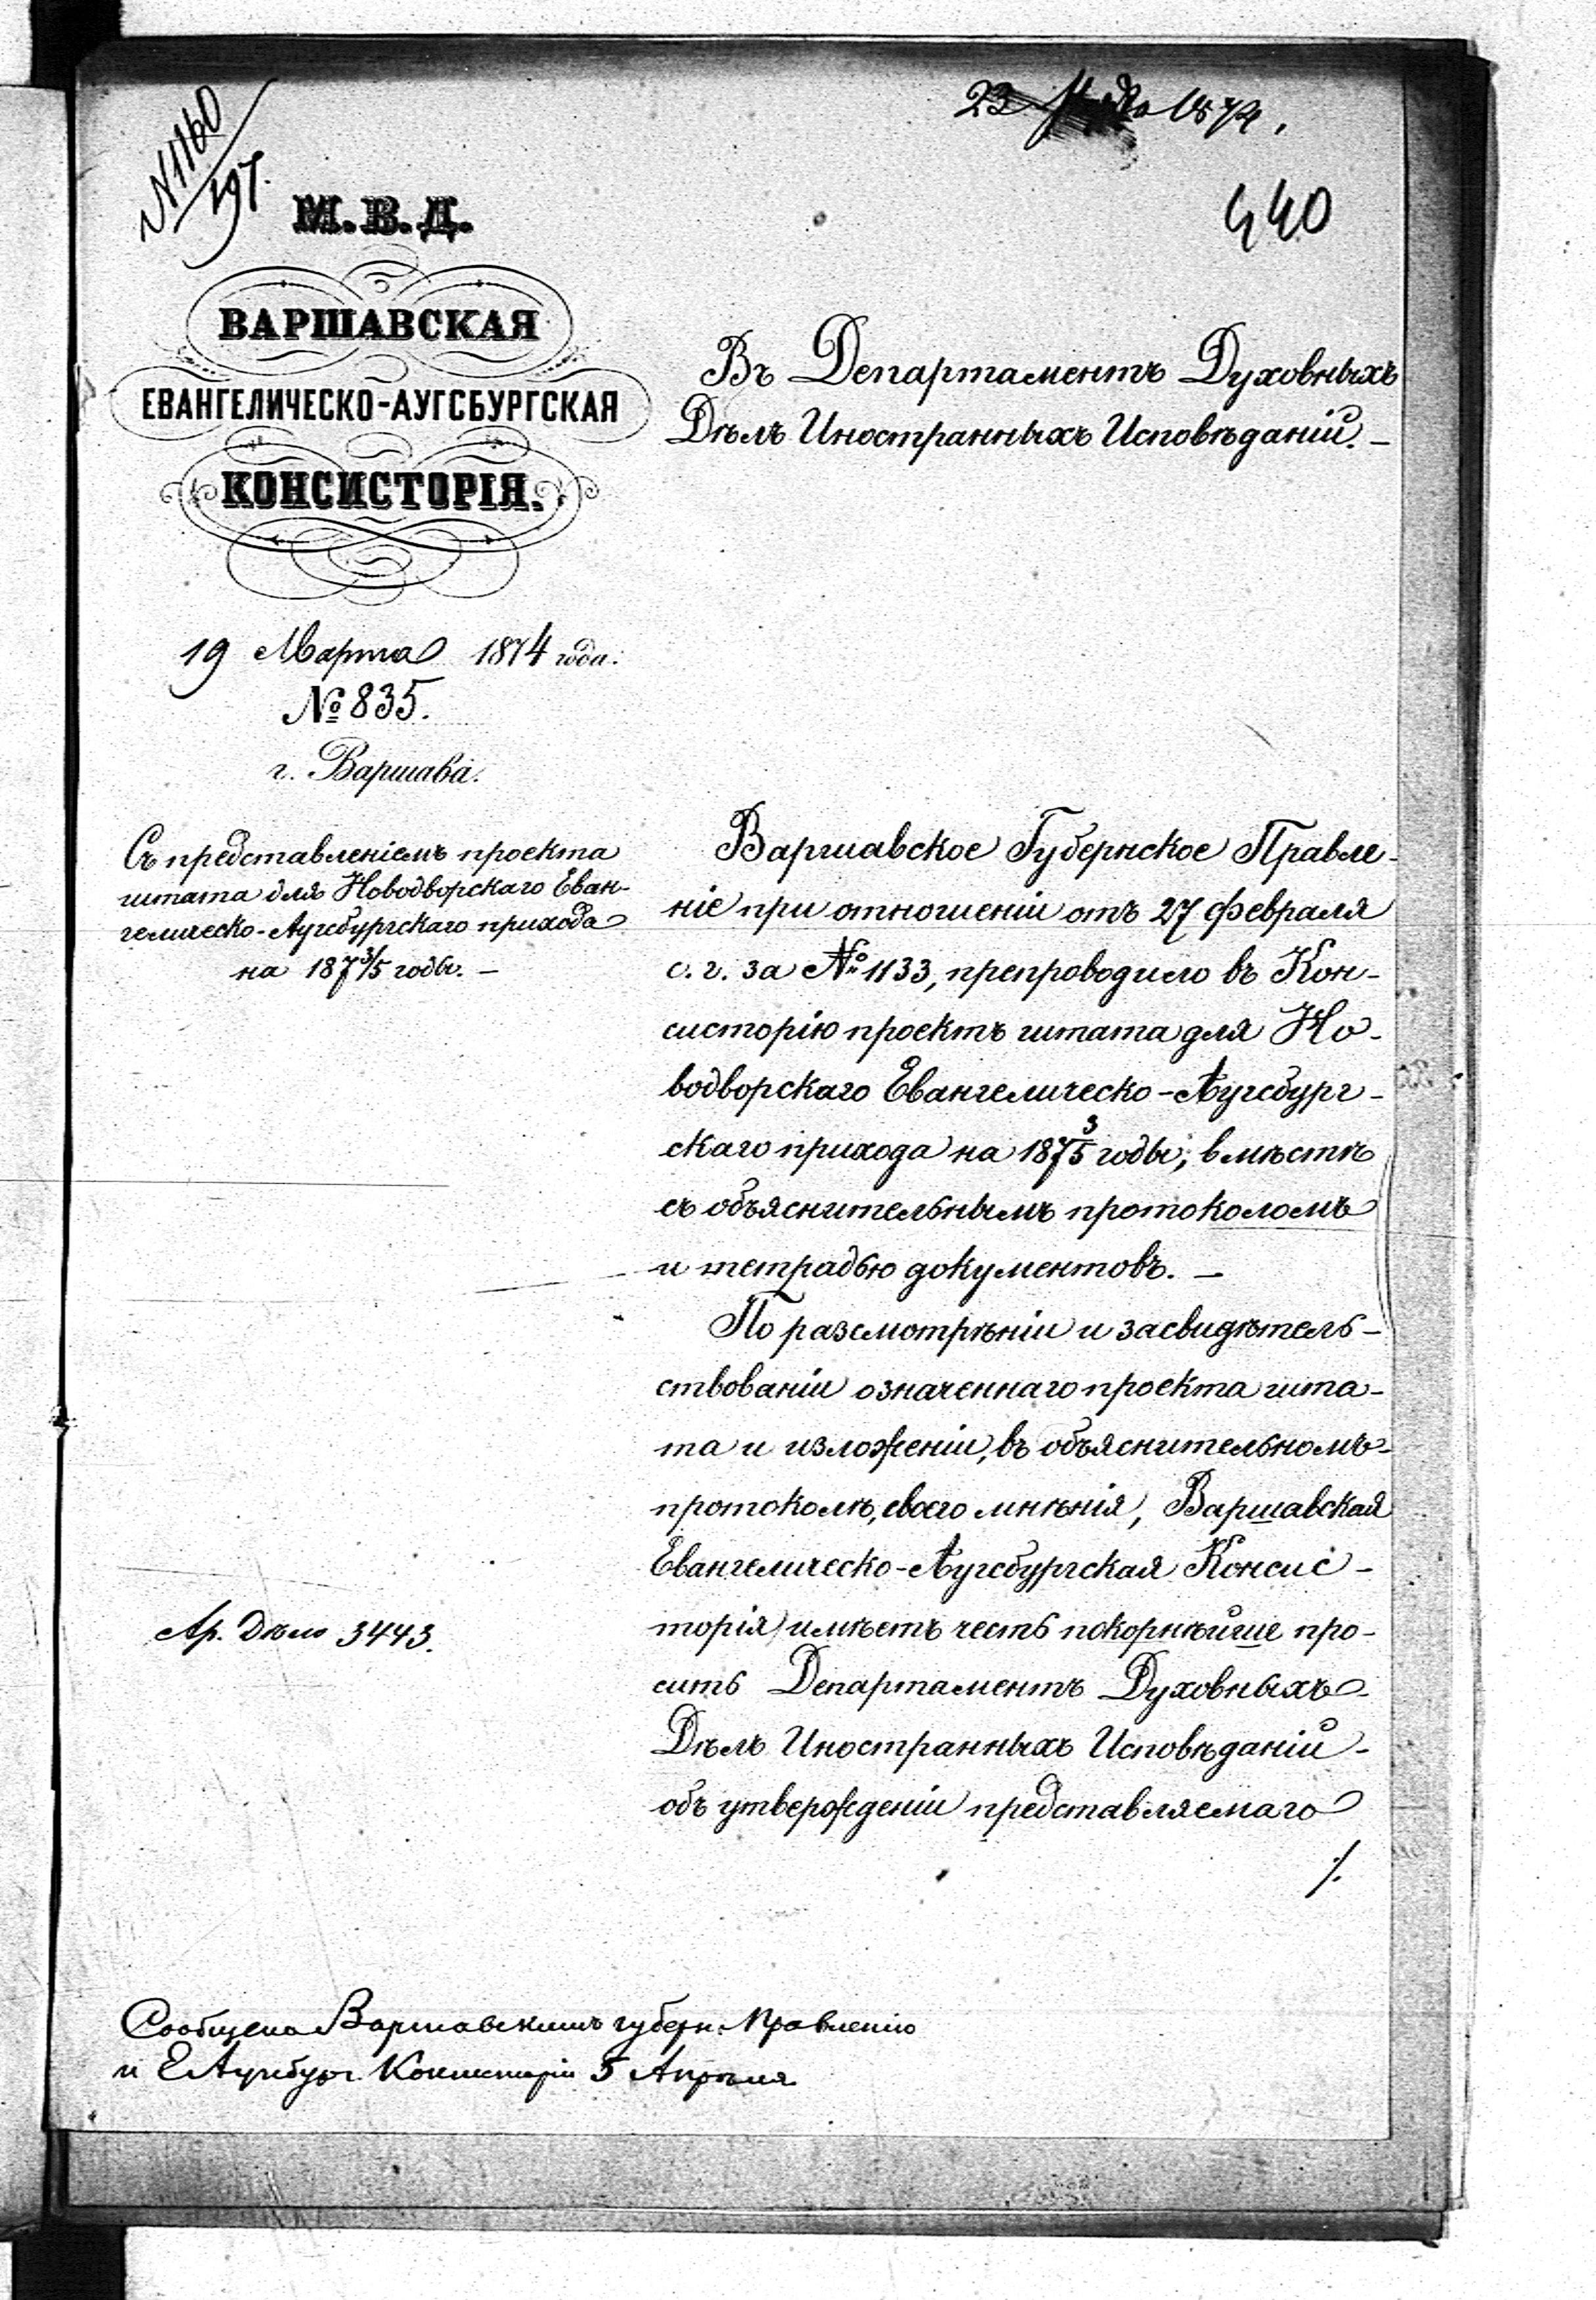 №1160
197.
23 1874.
440
М.В.Д.
ВАРШАВСКАЯ
ЕВАНГЕЛИЧЕСКО-АУГСБУРГСКАЯ
КОНСИСТОРІЯ.
19 Марта 1874 года.
№ 835.
г. Варшава.
Съ представленіемъ проекта
штата для Новодворскаго Еван-
гелическо-Аугсбургскаго прихода
на 187 3/5 годы. —
Ар. Дѣло 3443.
Въ Департаментъ Духовныхъ
Дѣлъ Иностранныхъ Исповѣданій. —
Варшавское Губернское Правле-
ніе при отношеніи отъ 27 Февраля
с. г. за № 1133, препроводило въ Кон-
систорію проектъ штата для Но-
водворскаго Евангелическо-Аугсбург-
скаго прихода на 187 3/5 годы, вмѣстѣ
съ объяснительнымъ протоколомъ
и тетрадью документовъ. —
По разсмотрѣніи и засвидѣтель-
ствованіи означеннаго проекта шта-
та и изложеніи, въ объяснительномъ-
протоколѣ, своего мнѣнія, Варшавская
Евангелическо-Аугсбургская Консис-
торія имѣетъ честь покорнѣйше про-
сить Департаментъ Духовныхъ
Дѣлъ Иностранныхъ Исповѣданій-
объ утвержденіи представляемаго
./.
Сообщено Варшавскимъ губерн. Правленію
и Е Аугсбург. Консисторіи 5 Апрѣля